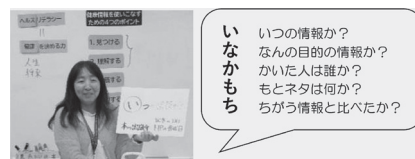 ヘルスリテラシー
健康情報を使いこなす
ための4つのポイント
健康 を決める力
1. 見つける
理解する
人生
い いつの情報か？
な なんの目的の情報か？
か かいた人は誰か？
も もとネタは何か？
ち ちがう情報と比べたか？